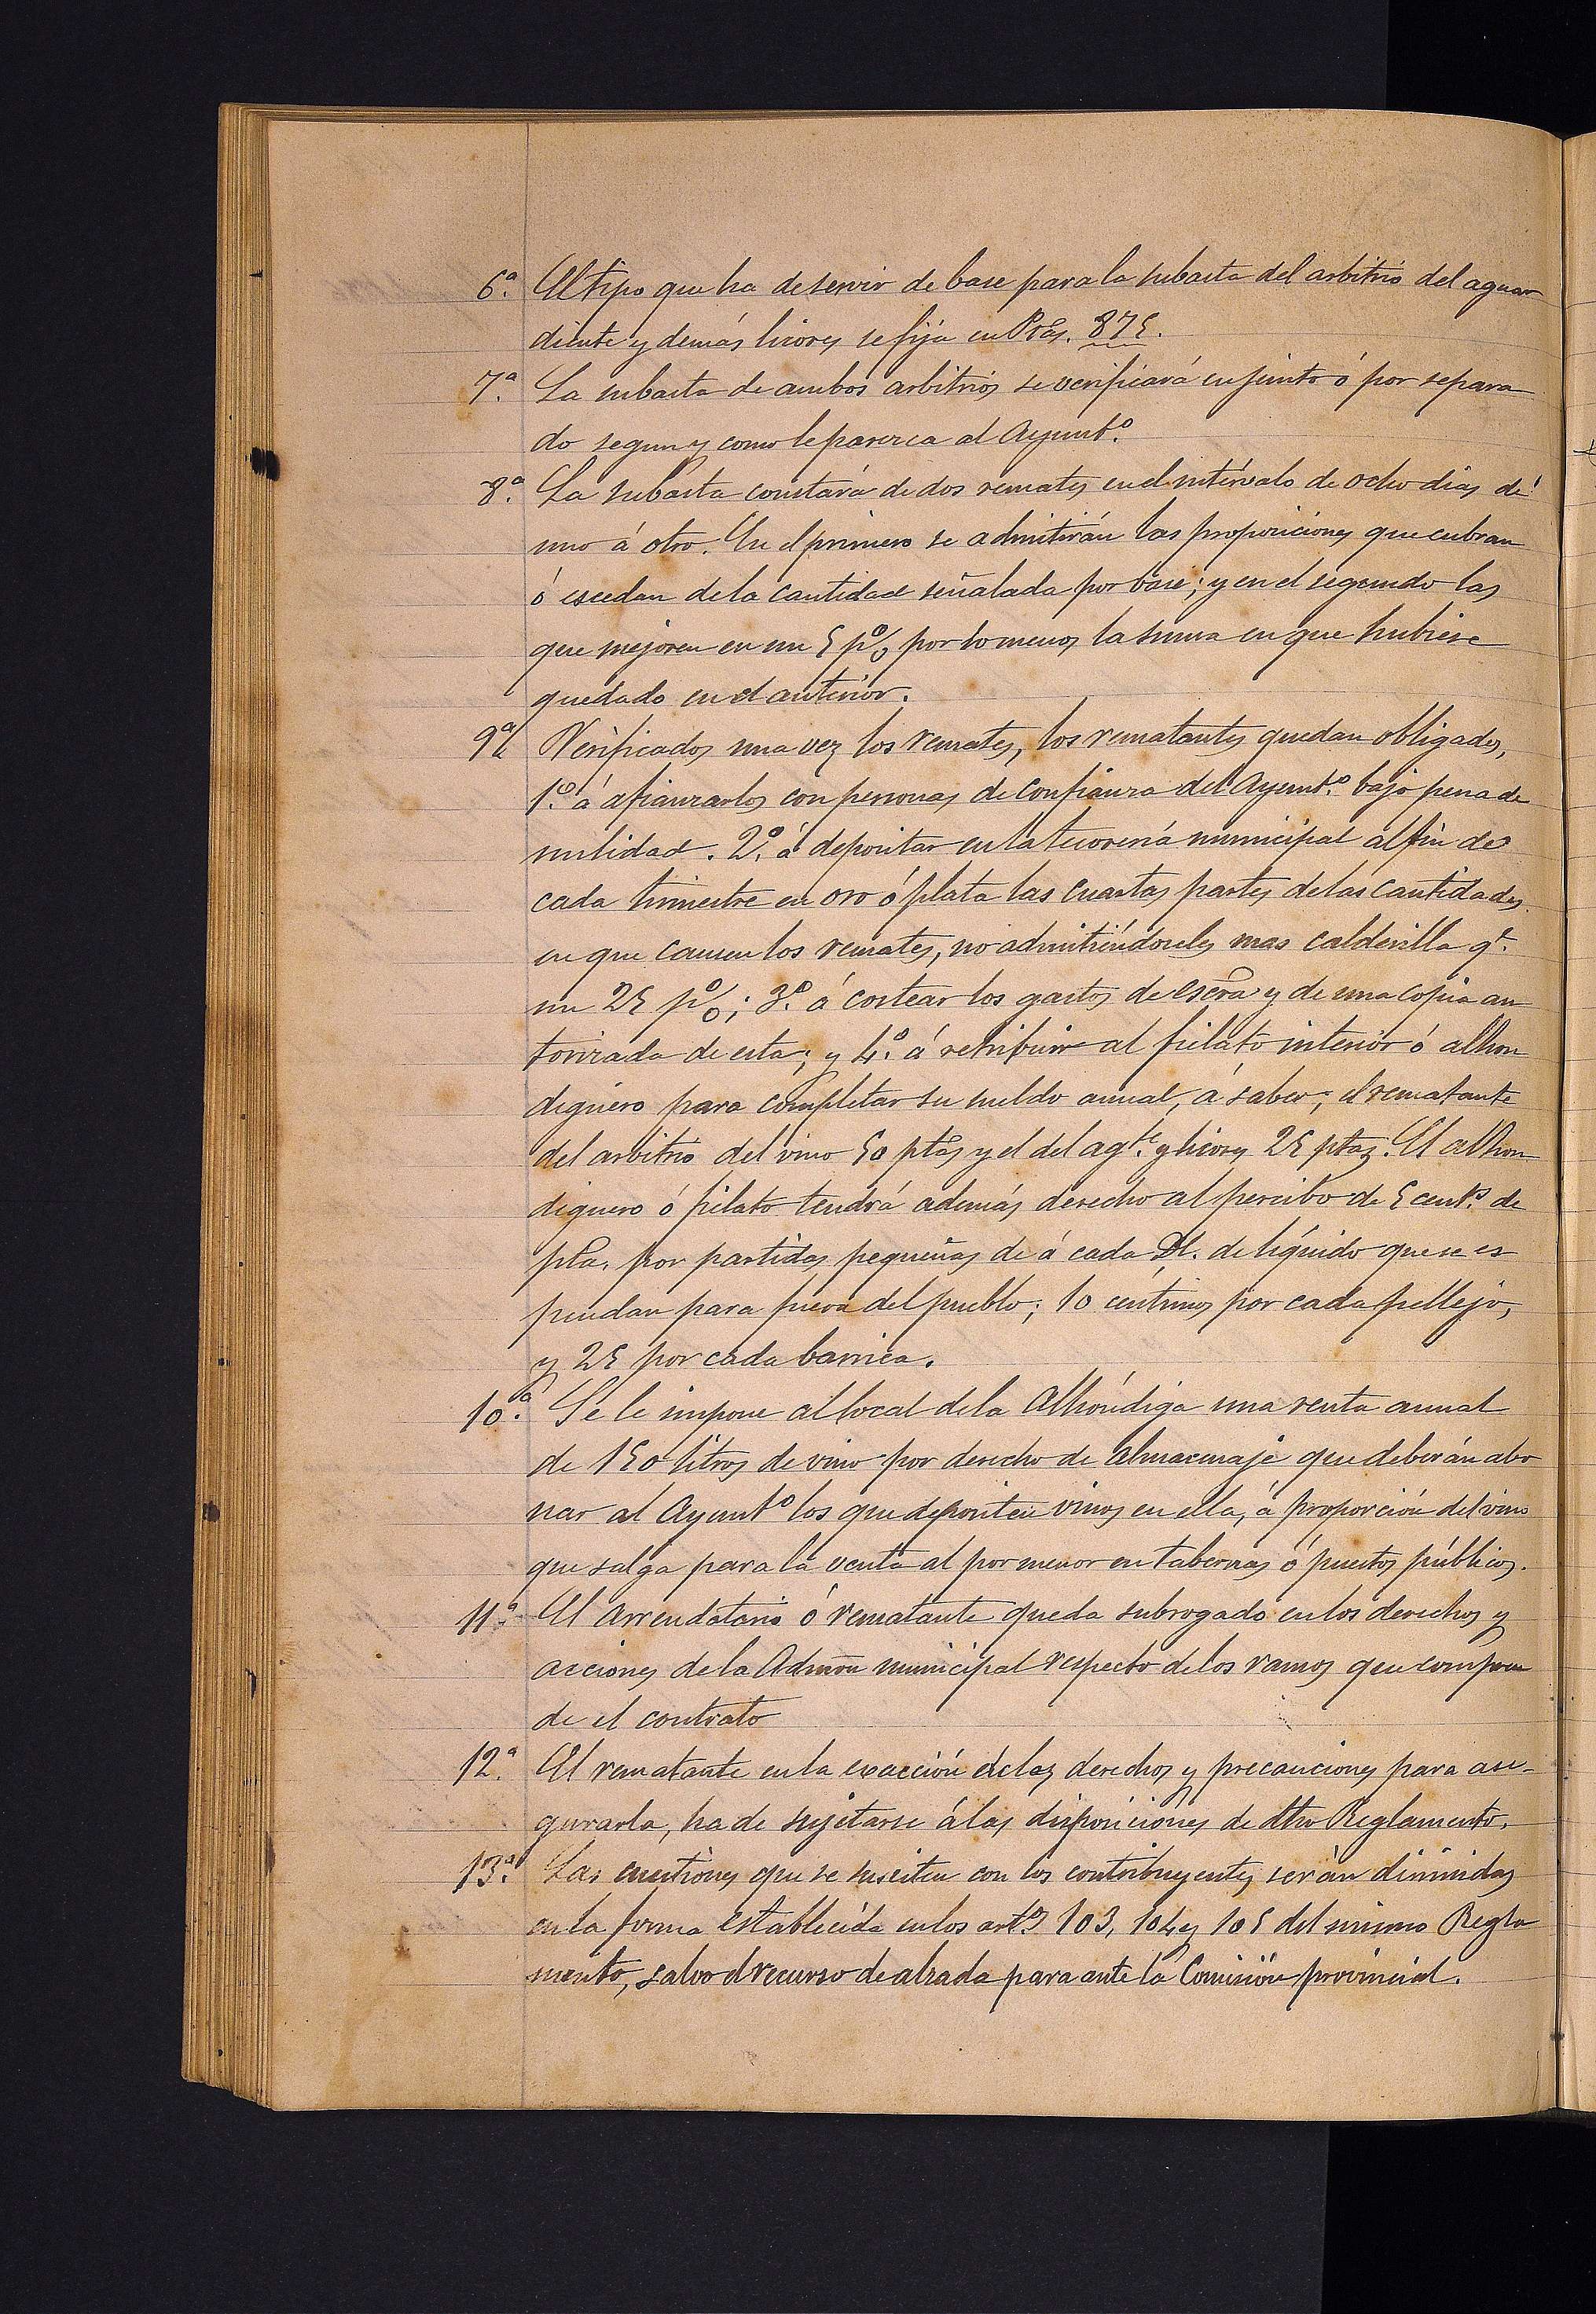 6.ª El tipo que ha de servir de base para la subasta del arbitrio del aguar
diente y demás licores se fija en Ptas. 875.
7.ª La subasta de ambos arbitrios se verificará en junto ó por separa
do segun y como le parezca al Ayunt.º
8.ª La subasta constará de dos remates en el intérvalo de ocho dias de
uno á otro. En el primero se admitirán las proposiciones que cubran
ó escedan de la cantidad señalada por base; y en el segundo las
que mejoren en un 5 p% por lo menos la suma en que hubiese
quedado en el anterior.
9.ª Verificados una vez los remates, los rematantes quedan obligados,
1.º á afianzarlos con personas de confianza del Ayunt.º bajo pena de
nulidad. 2.º á depositar en la tesorería municipal al fin de
cada trimestre en oro ó plata las cuartas partes de las cantidades
en que causen los remates, no admitiéndoseles mas calderilla q.e
un 25 p%; 3.º á costear los gastos de escra y de una copia au
torizada de esta; y 4.º á retribuir al fielato interior ó alhon
diguero para completar su sueldo anual, á saber; el rematante
del arbitrio del vino 50 ptas y el del ag.te y licores 25 ptas. El alhon
diguero ó fielato tendrá además derecho al percibo de 5 cent.s de
pta. por partidas pequeñas de á cada Dl. de líquido que se es
pendan para fuera del pueblo; 10 céntimos por cada pellejo,
y 25 por cada barrica.
10.ª Se le impone al local de la Alhóndiga una renta anual
de 150 litros de vino por derecho de almacenaje que deberán abo
nar al Ayunt.º los que depositen vinos en ella, á proporción del vino
que salga para la venta al por menor en tabernas ó puestos públicos.
11.ª El arrendatario ó rematante queda subrogado en los derechos y
acciones de la Admón municipal respecto de los ramos que compren
de el contrato
12.ª El rematante en la exacción de los derechos y precauciones para ase-
gurarla, ha de sujetarse á las disposiciones de dho Reglamento.
13.ª Las cuestiones que se susciten con los contribuyentes serán dirimidas
en la forma establecida en los art.os 103, 104 y 105 del mismo Regla
mento, salvo el recurso de alzada para ante la Comisión provincial.